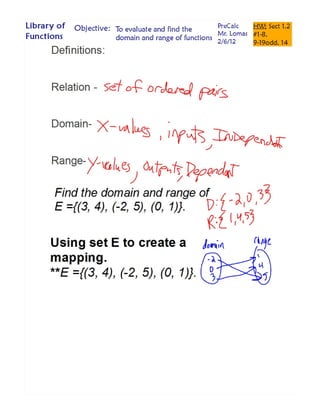 Library of Functions
Objective: To evaluate and find the domain and range of functions
PreCalc
Mr. Lomas
2/6/12
HW: Sect 1.2
#1-8,
9-19odd, 14
Definitions:
Relation - set of ordered pairs
Domain- X-values, inputs, Independent
Range- y-values, outputs, Dependent
Find the domain and range of
E ={(3, 4), (-2, 5), (0, 1)}.
D:{-2,0,3}
R:{1,4,5}
Using set E to create a
mapping.
**E ={(3, 4), (-2, 5), (0, 1)}.
domain range
-2 1
0 4
3 5